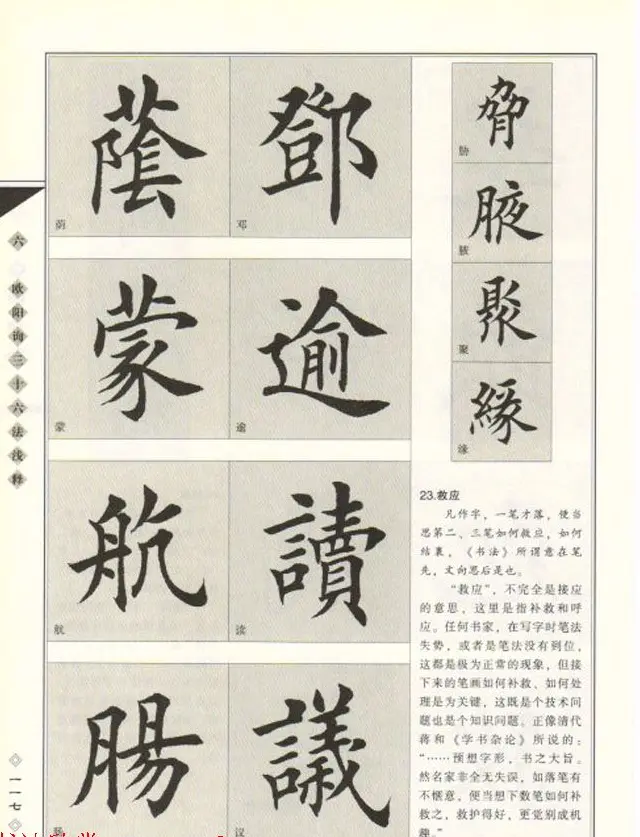 六 欧阳询三十六法浅释
蔭 鄧
荫 邓
蒙 逾
蒙 逾
航 讀
航 读
腸 議
脅
胁
腋
腋
聚
聚
緣
缘
23.救应
凡作字，一笔才落，便当
思第二、三笔如何救应，如何
结裹，《书法》所谓意在笔
先，文向思后是也。
“救应”，不完全是接应
的意思，这里是指补救和呼
应。任何书家，在写字时笔法
失势，或者是笔法没有到位，
这都是极为正常的现象，但接
下来的笔画如何补救、如何处
理是为关键，这既是个技术问
题也是个知识问题。正像清代
蒋和《学书杂论》所说的：
“……预想字形，书之大旨。
然名家非全无失误，如落笔有
不惬意，便当想下数笔如何补
救之，救护得好，更觉别成机
趣。”
一一七